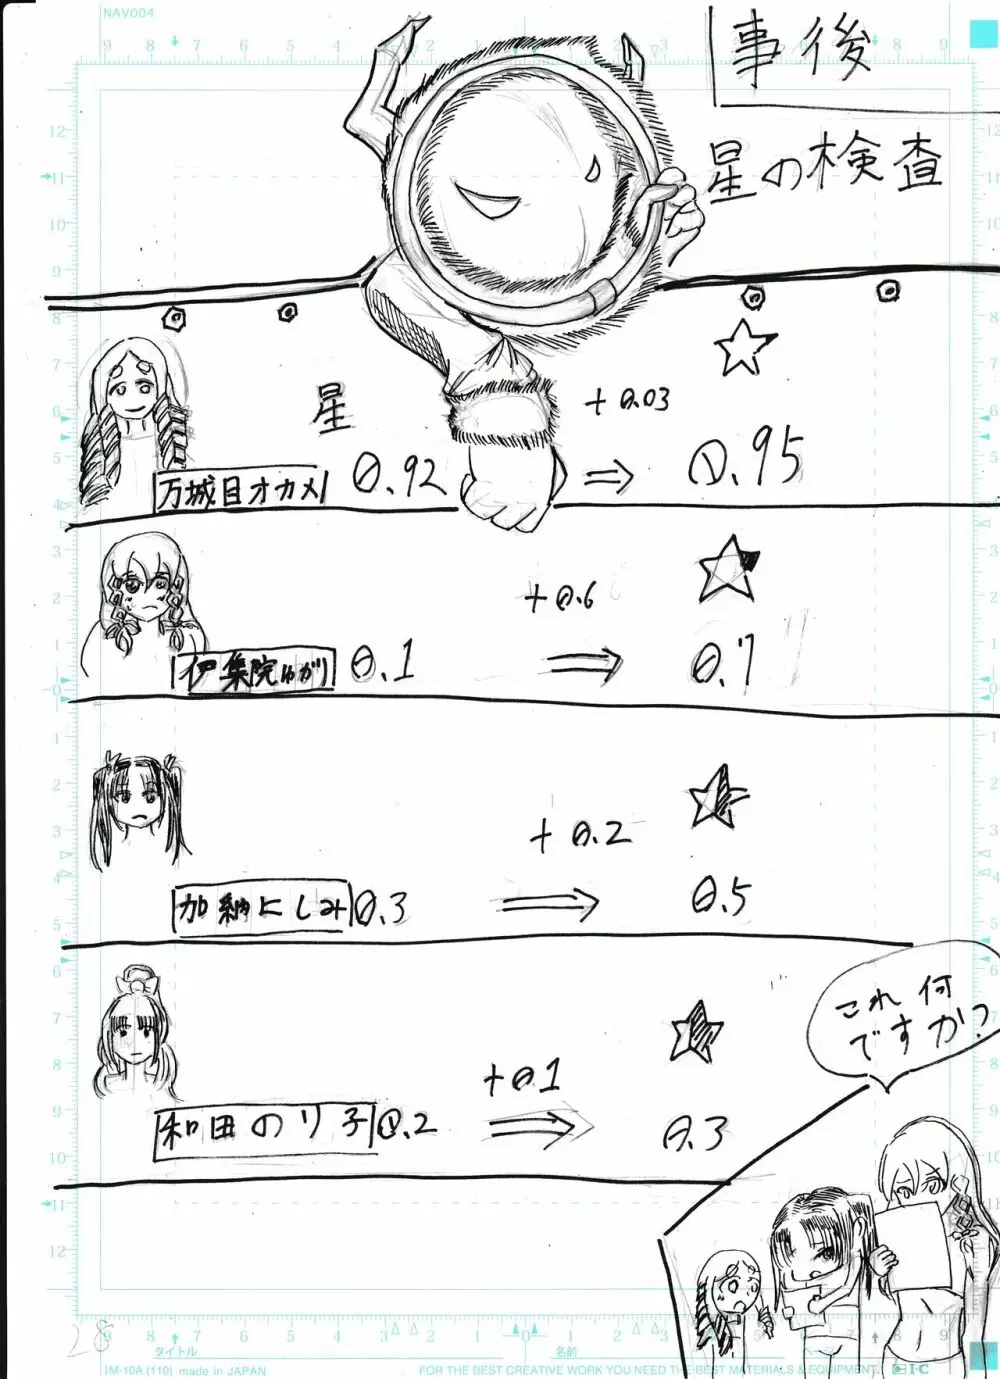 NAV004
事後
星の検査
星
+0.03
万城目オカメ
0.92
⇒
0.95
+0.6
伊集院ゆがり
0.1
⇒
0.7
+0.2
加納にしみ
0.3
⇒
0.5
+0.1
和田のり子
0.2
⇒
0.3
これ何
ですか?
28
タイトル
名前
IM-10A (110) made in JAPAN
FOR THE BEST CREATIVE WORK YOU NEED THE BEST MATERIALS & EQUIPMENT.
I·C